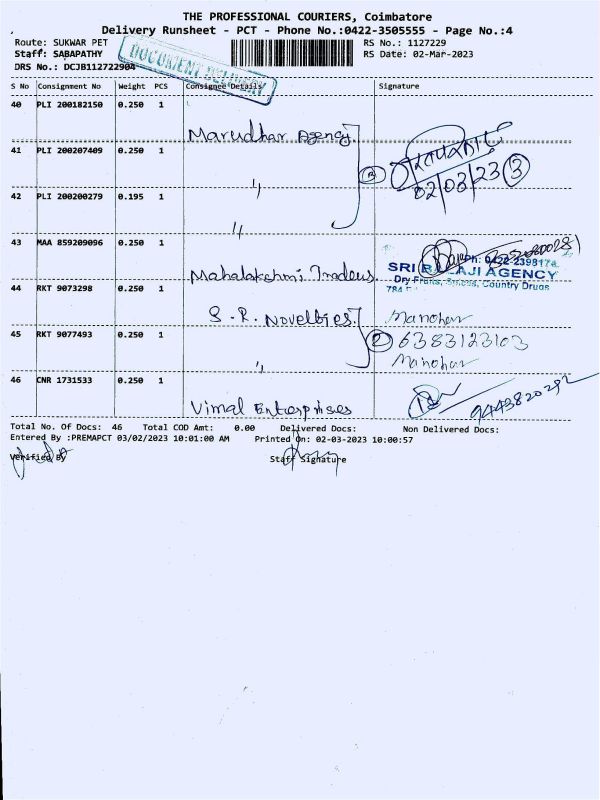 THE PROFESSIONAL COURIERS, Coimbatore
Delivery Runsheet - PCT - Phone No.:0422-3505555 - Page No.:4
Route: SUKWAR PET
RS No.: 1127229
Staff: SABAPATHY
RS Date: 02-Mar-2023
DRS No.: DCJB112722904
DOCUMENT DELIVERY
S No Consignment No Weight PCS Consignee Details Signature
40 PLI 200182150 0.250 1
Marudhar Agency
41 PLI 200207409 0.250 1
〃
02/03/23 3
42 PLI 200200279 0.195 1
〃
43 MAA 859209096 0.250 1
Mahalakshmi Traders
SRI BALAJI AGENCY
Dry Fruits, Spices, Country Drugs
44 RKT 9073298 0.250 1
S.R. Novelties
Manohar
45 RKT 9077493 0.250 1
〃
2 6383123103
Manohar
46 CNR 1731533 0.250 1
Vimal Enterprises
9443820292
Total No. Of Docs: 46 Total COD Amt: 0.00 Delivered Docs: Non Delivered Docs:
Entered By :PREMAPCT 03/02/2023 10:01:00 AM Printed On: 02-03-2023 10:00:57
Verified By Staff Signature